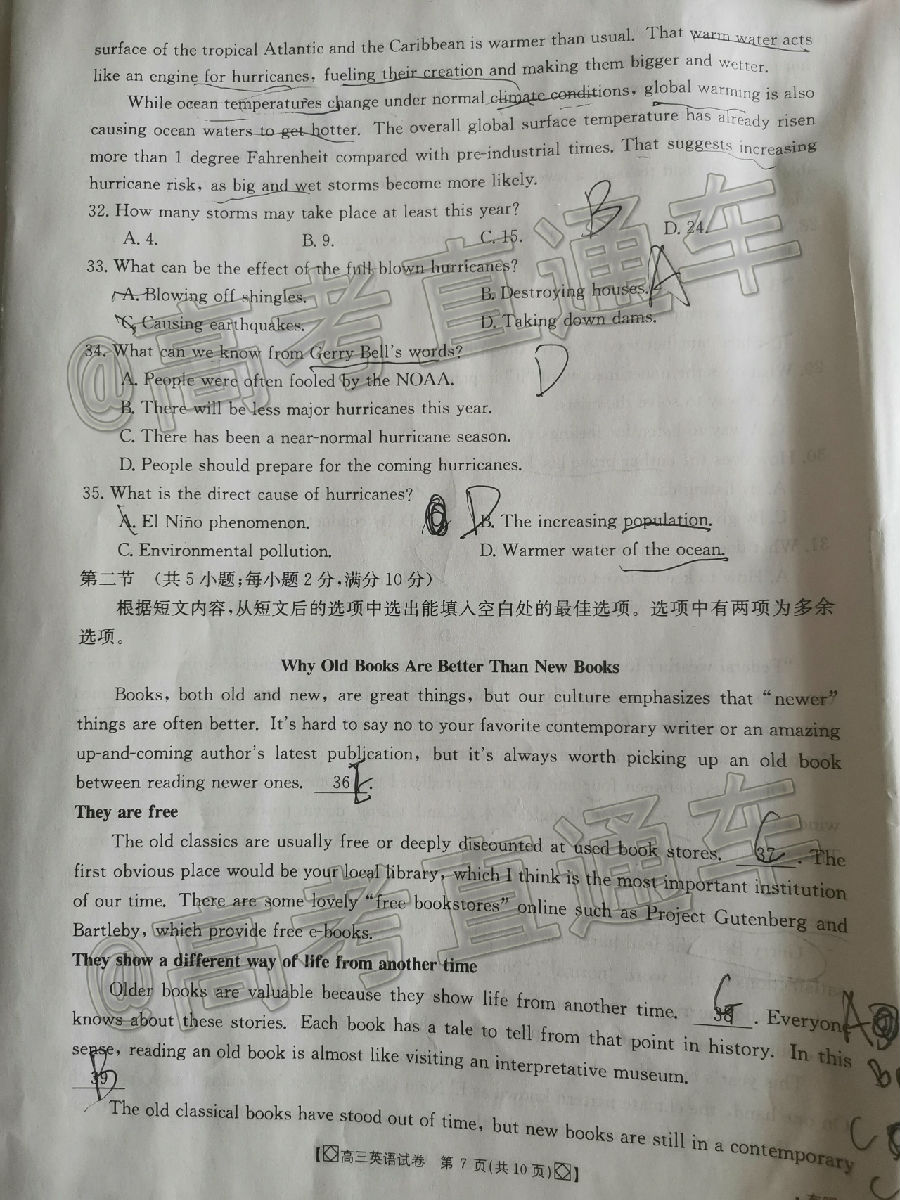 surface of the tropical Atlantic and the Caribbean is warmer than usual. That warm water acts
like an engine for hurricanes, fueling their creation and making them bigger and wetter.
While ocean temperatures change under normal climate conditions, global warming is also
causing ocean waters to get hotter. The overall global surface temperature has already risen
more than 1 degree Fahrenheit compared with pre-industrial times. That suggests increasing
hurricane risk, as big and wet storms become more likely.
32. How many storms may take place at least this year? B
A. 4. B. 9. C. 15. D. 24.
33. What can be the effect of the full-blown hurricanes? A
A. Blowing off shingles. B. Destroying houses.
C. Causing earthquakes. D. Taking down dams.
34. What can we know from Gerry Bell's words? D
A. People were often fooled by the NOAA.
B. There will be less major hurricanes this year.
C. There has been a near-normal hurricane season.
D. People should prepare for the coming hurricanes.
35. What is the direct cause of hurricanes? D
A. El Niño phenomenon. B. The increasing population.
C. Environmental pollution. D. Warmer water of the ocean.
第二节 (共5小题;每小题2分,满分10分)
根据短文内容,从短文后的选项中选出能填入空白处的最佳选项。选项中有两项为多余
选项。
Why Old Books Are Better Than New Books
Books, both old and new, are great things, but our culture emphasizes that “newer”
things are often better. It's hard to say no to your favorite contemporary writer or an amazing
up-and-coming author's latest publication, but it's always worth picking up an old book
between reading newer ones. 36 E.
They are free
The old classics are usually free or deeply discounted at used book stores. 37 C. The
first obvious place would be your local library, which I think is the most important institution
of our time. There are some lovely “free bookstores” online such as Project Gutenberg and
Bartleby, which provide free e-books.
They show a different way of life from another time
Older books are valuable because they show life from another time. 38 G. Everyone A
knows about these stories. Each book has a tale to tell from that point in history. In this
sense, reading an old book is almost like visiting an interpretative museum.
39 B
The old classical books have stood out of time, but new books are still in a contemporary
【高三英语试卷 第7页(共10页)】
@高考直通车
@高考直通车